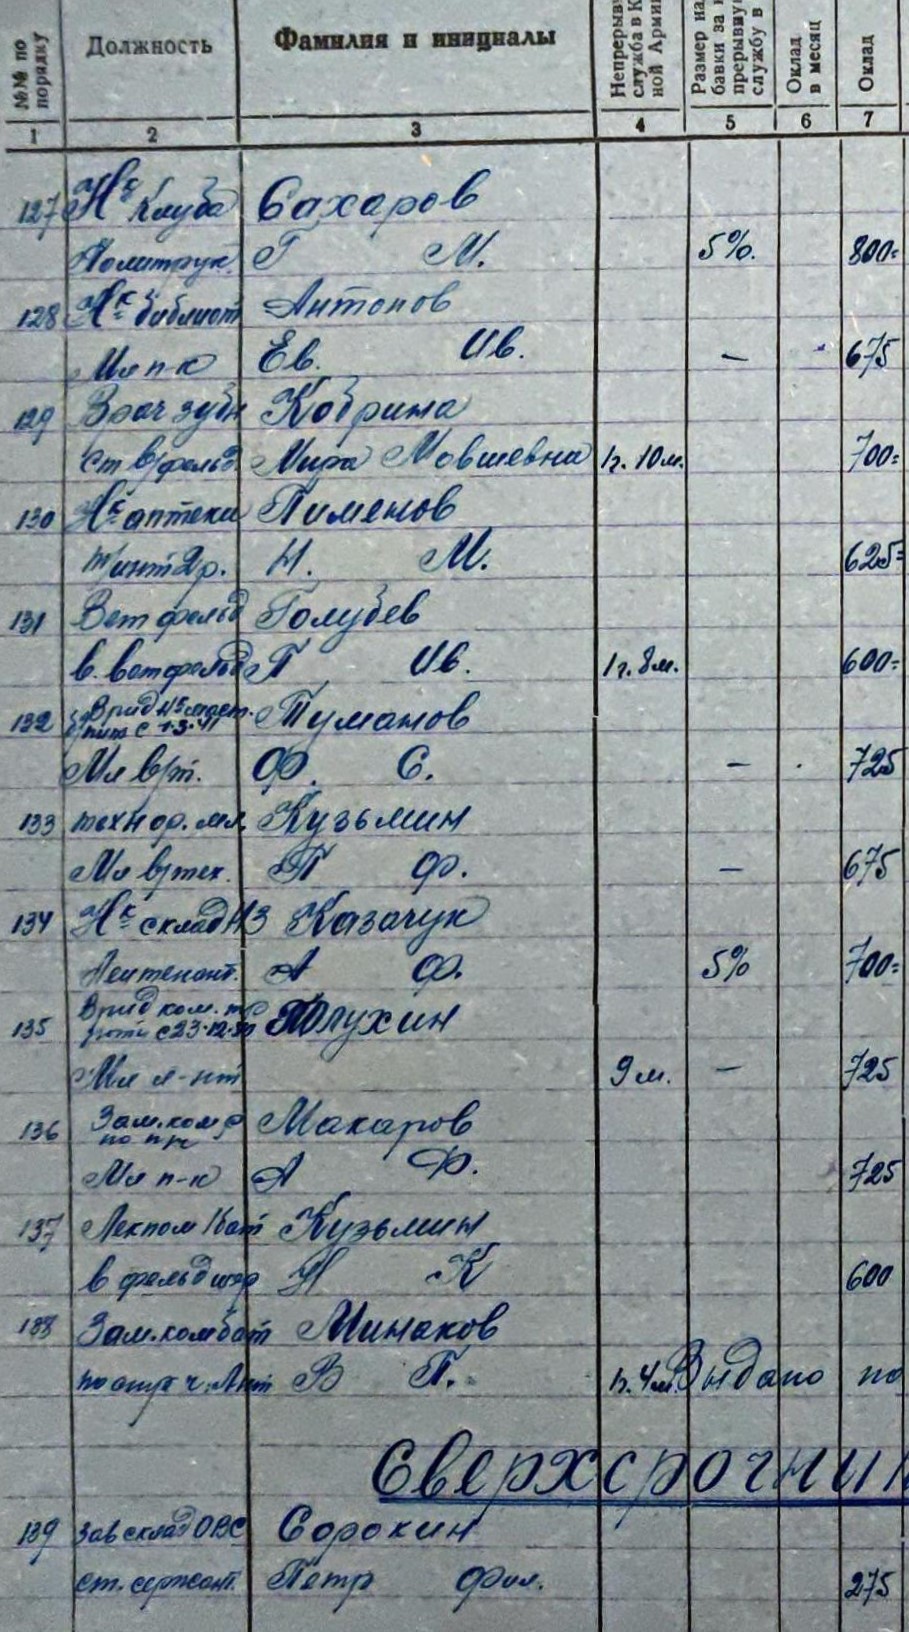 №№ по порядку Должность Фамилия и инициалы Непрерывн служба в К ной Арми Размер на бавки за н прерывну службу в Оклад в месяц Оклад
1 2 3 4 5 6 7
127 Нк клуба Сахаров
Политрук. Г М. 5%. 800=
128 Нк библиот Антонов
Мл п-к Ев. Ив. — 675
129 Врач зубн Кобрина
Ст в/фельд. Мира Мовшевна 1г. 10м. 700=
130 Нк аптеки Пименов
т/инт 2р. Н. М. 625=
131 Вет фельд Голубев
в. ветфельд П Ив. 1г. 8м. 600=
132 Врид Нк маст. пит с 1·3·41 Туманов
Мл в/т. Ф. С. — 725
133 техн ор. мл. Кузьмин
Мл в/тех. П Ф. — 675
134 Нк склад НЗ Казачук
Лейтенант. А Ф. 5% 700=
135 Врид ком. роты с 23·12· Юлухин
Мл л-нт 9 м. — 725
136 Зам. ком по Макаров
Мл п-к А Ф. 725
137 Лекпом 1 бат Кузьмин
в фельдшер Н К 600
138 Зам. комбат Минаков
по стр ч. Лнт В П. 1г. 4м. Выдано по
Сверхсрочник
139 Зав склад ОВС Сорокин
ст. сержант. Петр Фил. 275